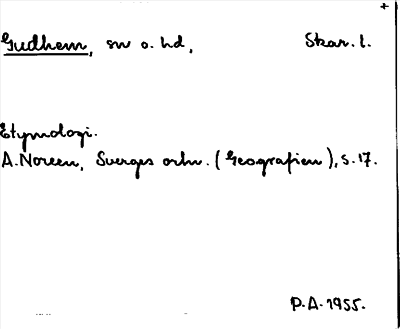 +
Gudhem, sn o. hd, Skar. l.
Etymologi.
A. Noreen, Sverges ortn. (Geografien), s. 17.
P.A. 1955.